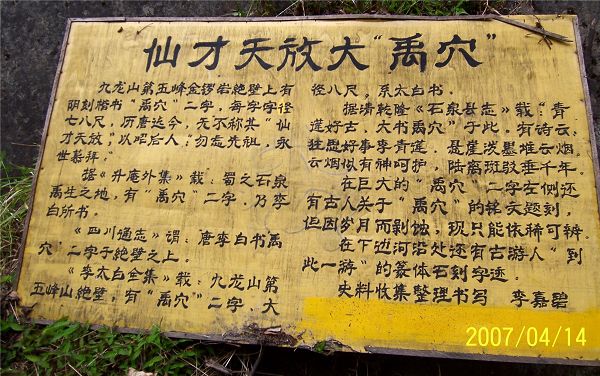 仙才天放大“禹穴”
九龙山第五峰金锣岩绝壁上有
阴刻楷书“禹穴”二字，每字字径
七八尺，历唐迄今，无不称其“仙
才天放”，以昭后人：勿忘先祖，永
世慕拜。
据《升庵外集》载：蜀之石泉
禹生之地，有“禹穴”二字，乃李
白所书。
《四川通志》谓：唐李白书禹
穴”二字于绝壁之上。
《李太白全集》载：九龙山第
五峰山绝壁，有“禹穴”二字，大
径八尺，系太白书。
据清乾隆《石泉县志》载：“青
莲好古，大书禹穴”于此，有诗云：
狂思好事李青莲，悬崖泼墨堆云烟。
云烟似有神呵护，陆离斑驳垂千年。
在巨大的“禹穴”二字左侧还
有古人关于“禹穴”的铭文题刻，
但因岁月而剥蚀，现只能依稀可辨。
在下边河沿处还有古游人“到
此一游”的篆体石刻字迹。
史料收集整理书写 李嘉碧
2007/04/14